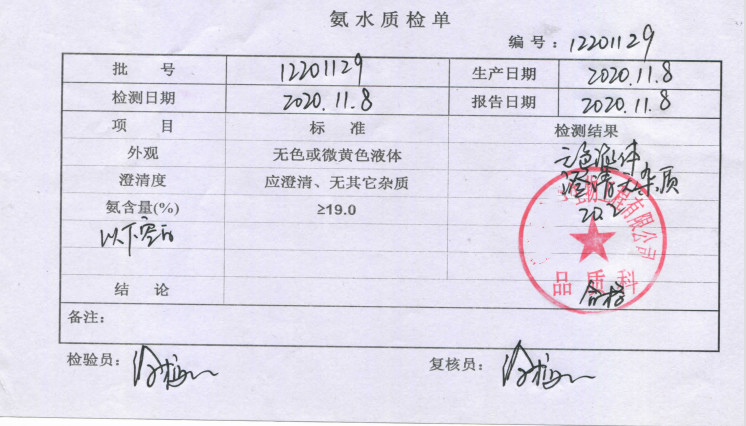 氨水质检单
编号：12201129
批 号 12201129 生产日期 2020.11.8
检测日期 2020.11.8 报告日期 2020.11.8
项 目 标 准 检测结果
外观 无色或微黄色液体 无色液体
澄清度 应澄清、无其它杂质 澄清无杂质
氨含量(%) ≥19.0 20.2
以下空白
工程有限公司
品质科
结 论 合格
备注：
检验员： 复核员：